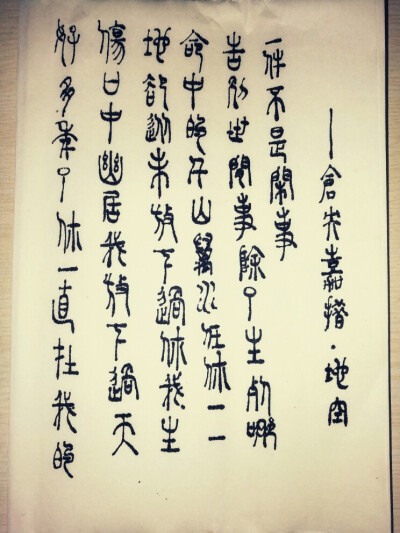 好多年了你一直在我的
傷口中幽居我放下過天
地卻從未放下過你我生
命中的千山萬水任你一一
告别世間事除了生死哪
一件不是閑事
—倉央嘉措·地空